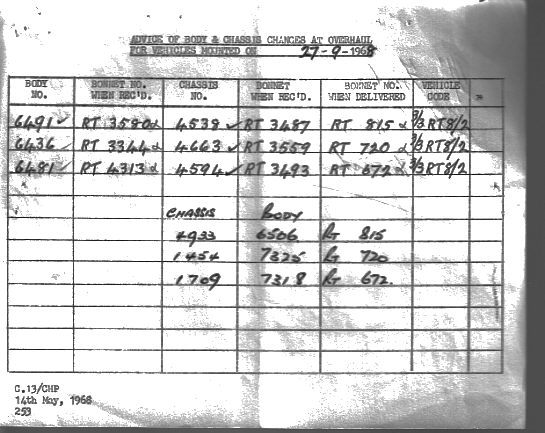 ADVICE OF BODY & CHASSIS CHANGES AT OVERHAUL
FOR VEHICLES MOUNTED ON 27-9-1968
BODY NO. BONNET NO. WHEN REC'D. CHASSIS NO. BONNET WHEN REC'D. BONNET NO. WHEN DELIVERED VEHICLE CODE
6491 ✓ RT 3580 4538 ✓ RT 3487 RT 815 3/3RT8/2
6436 ✓ RT 3344 4663 ✓ RT 3559 RT 720 3/3RT8/2
6481 ✓ RT 4313 4594 ✓ RT 3493 RT 672 3/3RT8/2
CHASSIS BODY
4933 6506 RT 815
1454 7325 RT 720
1709 7318 RT 672.
C.13/CHP
14th May, 1968
253